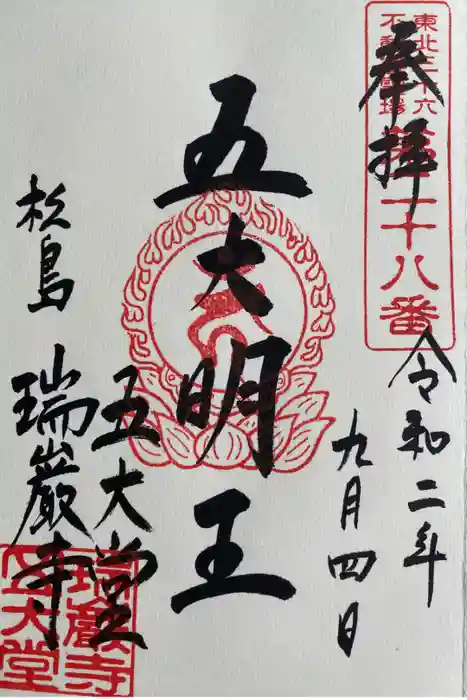 東北三十六
不動霊場
第二十八番
奉拝
令和二年
九月四日
五大明王
松島 瑞巌寺
五大堂
瑞巌寺
五大堂